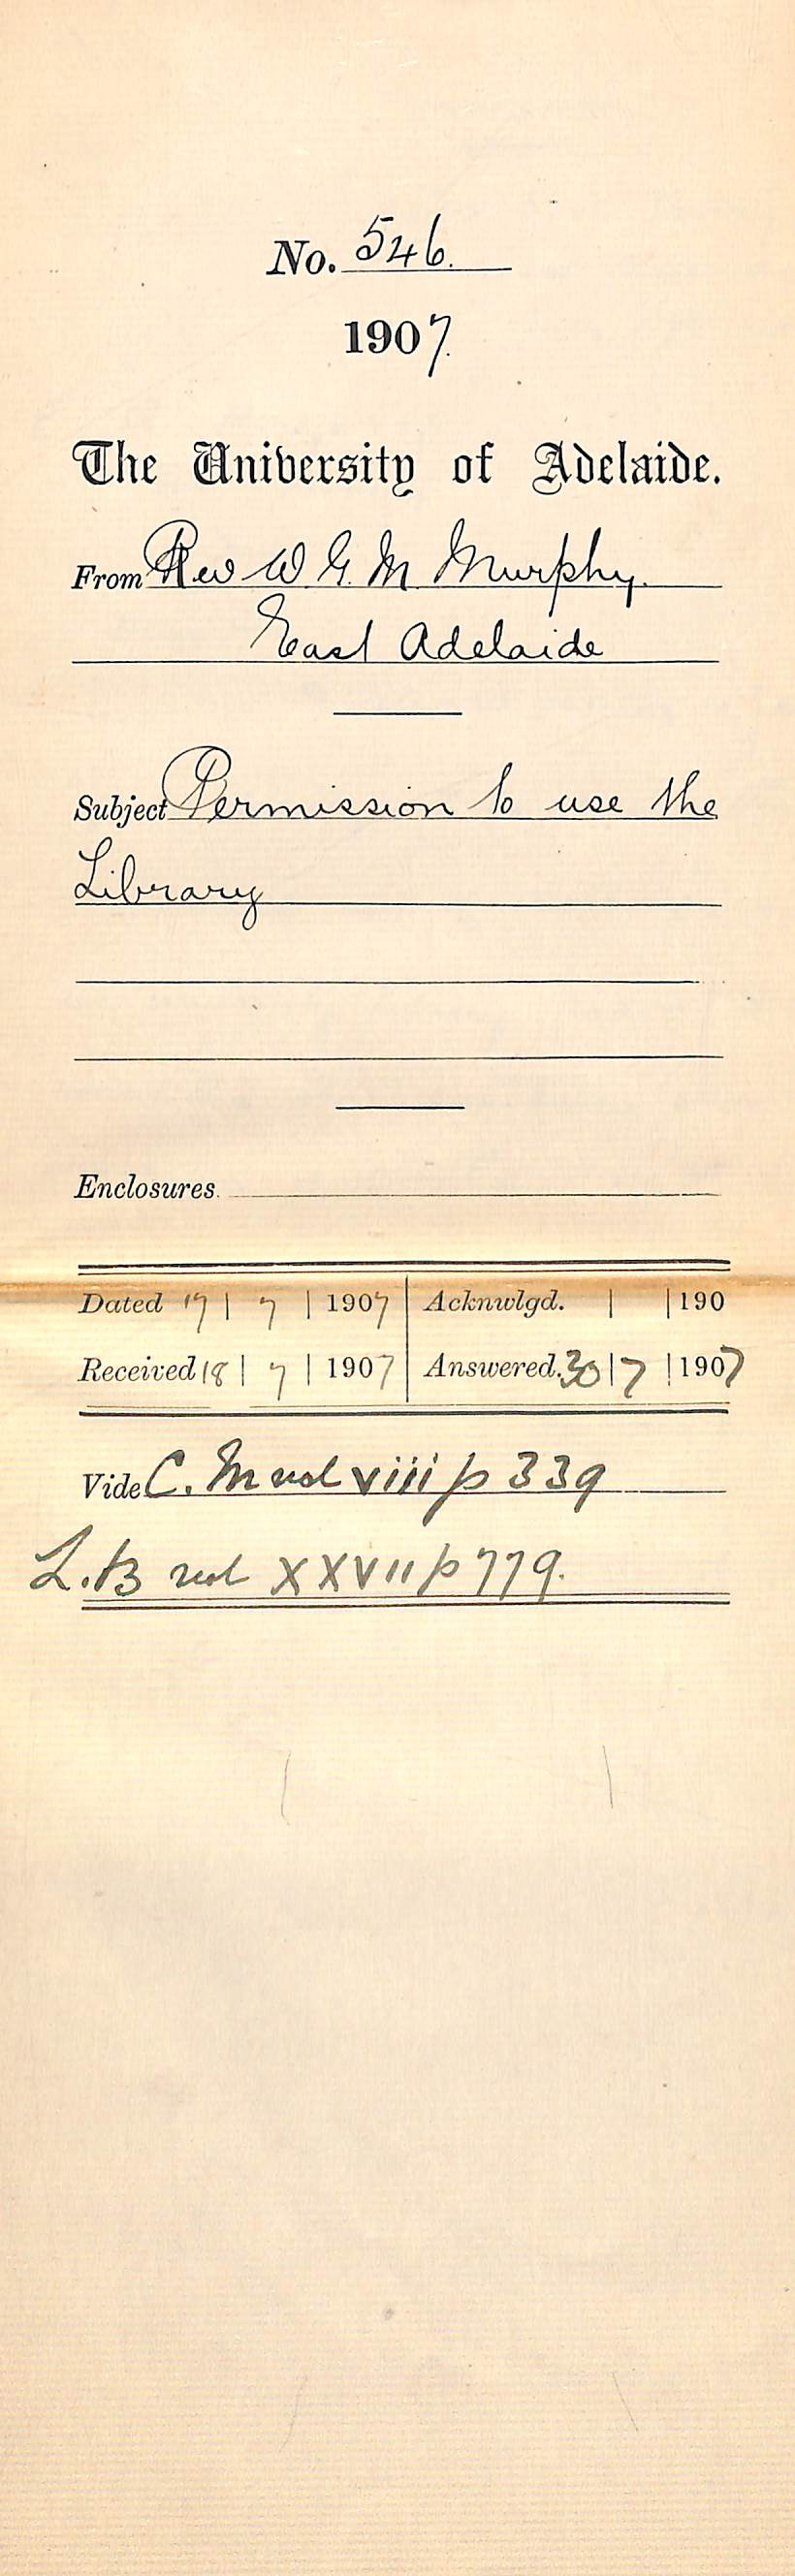 No. 546.
1907.
The University of Adelaide.
From Rev W G. M Murphy.
East Adelaide
Subject Permission to use the
Library
Enclosures.
Dated 17 | 7 | 1907 | Acknwlgd. | | 190
Received 18 | 7 | 1907 | Answered. 30 | 7 | 1907
Vide C. M vol viii p 339
L.B vol XXVII p 779.